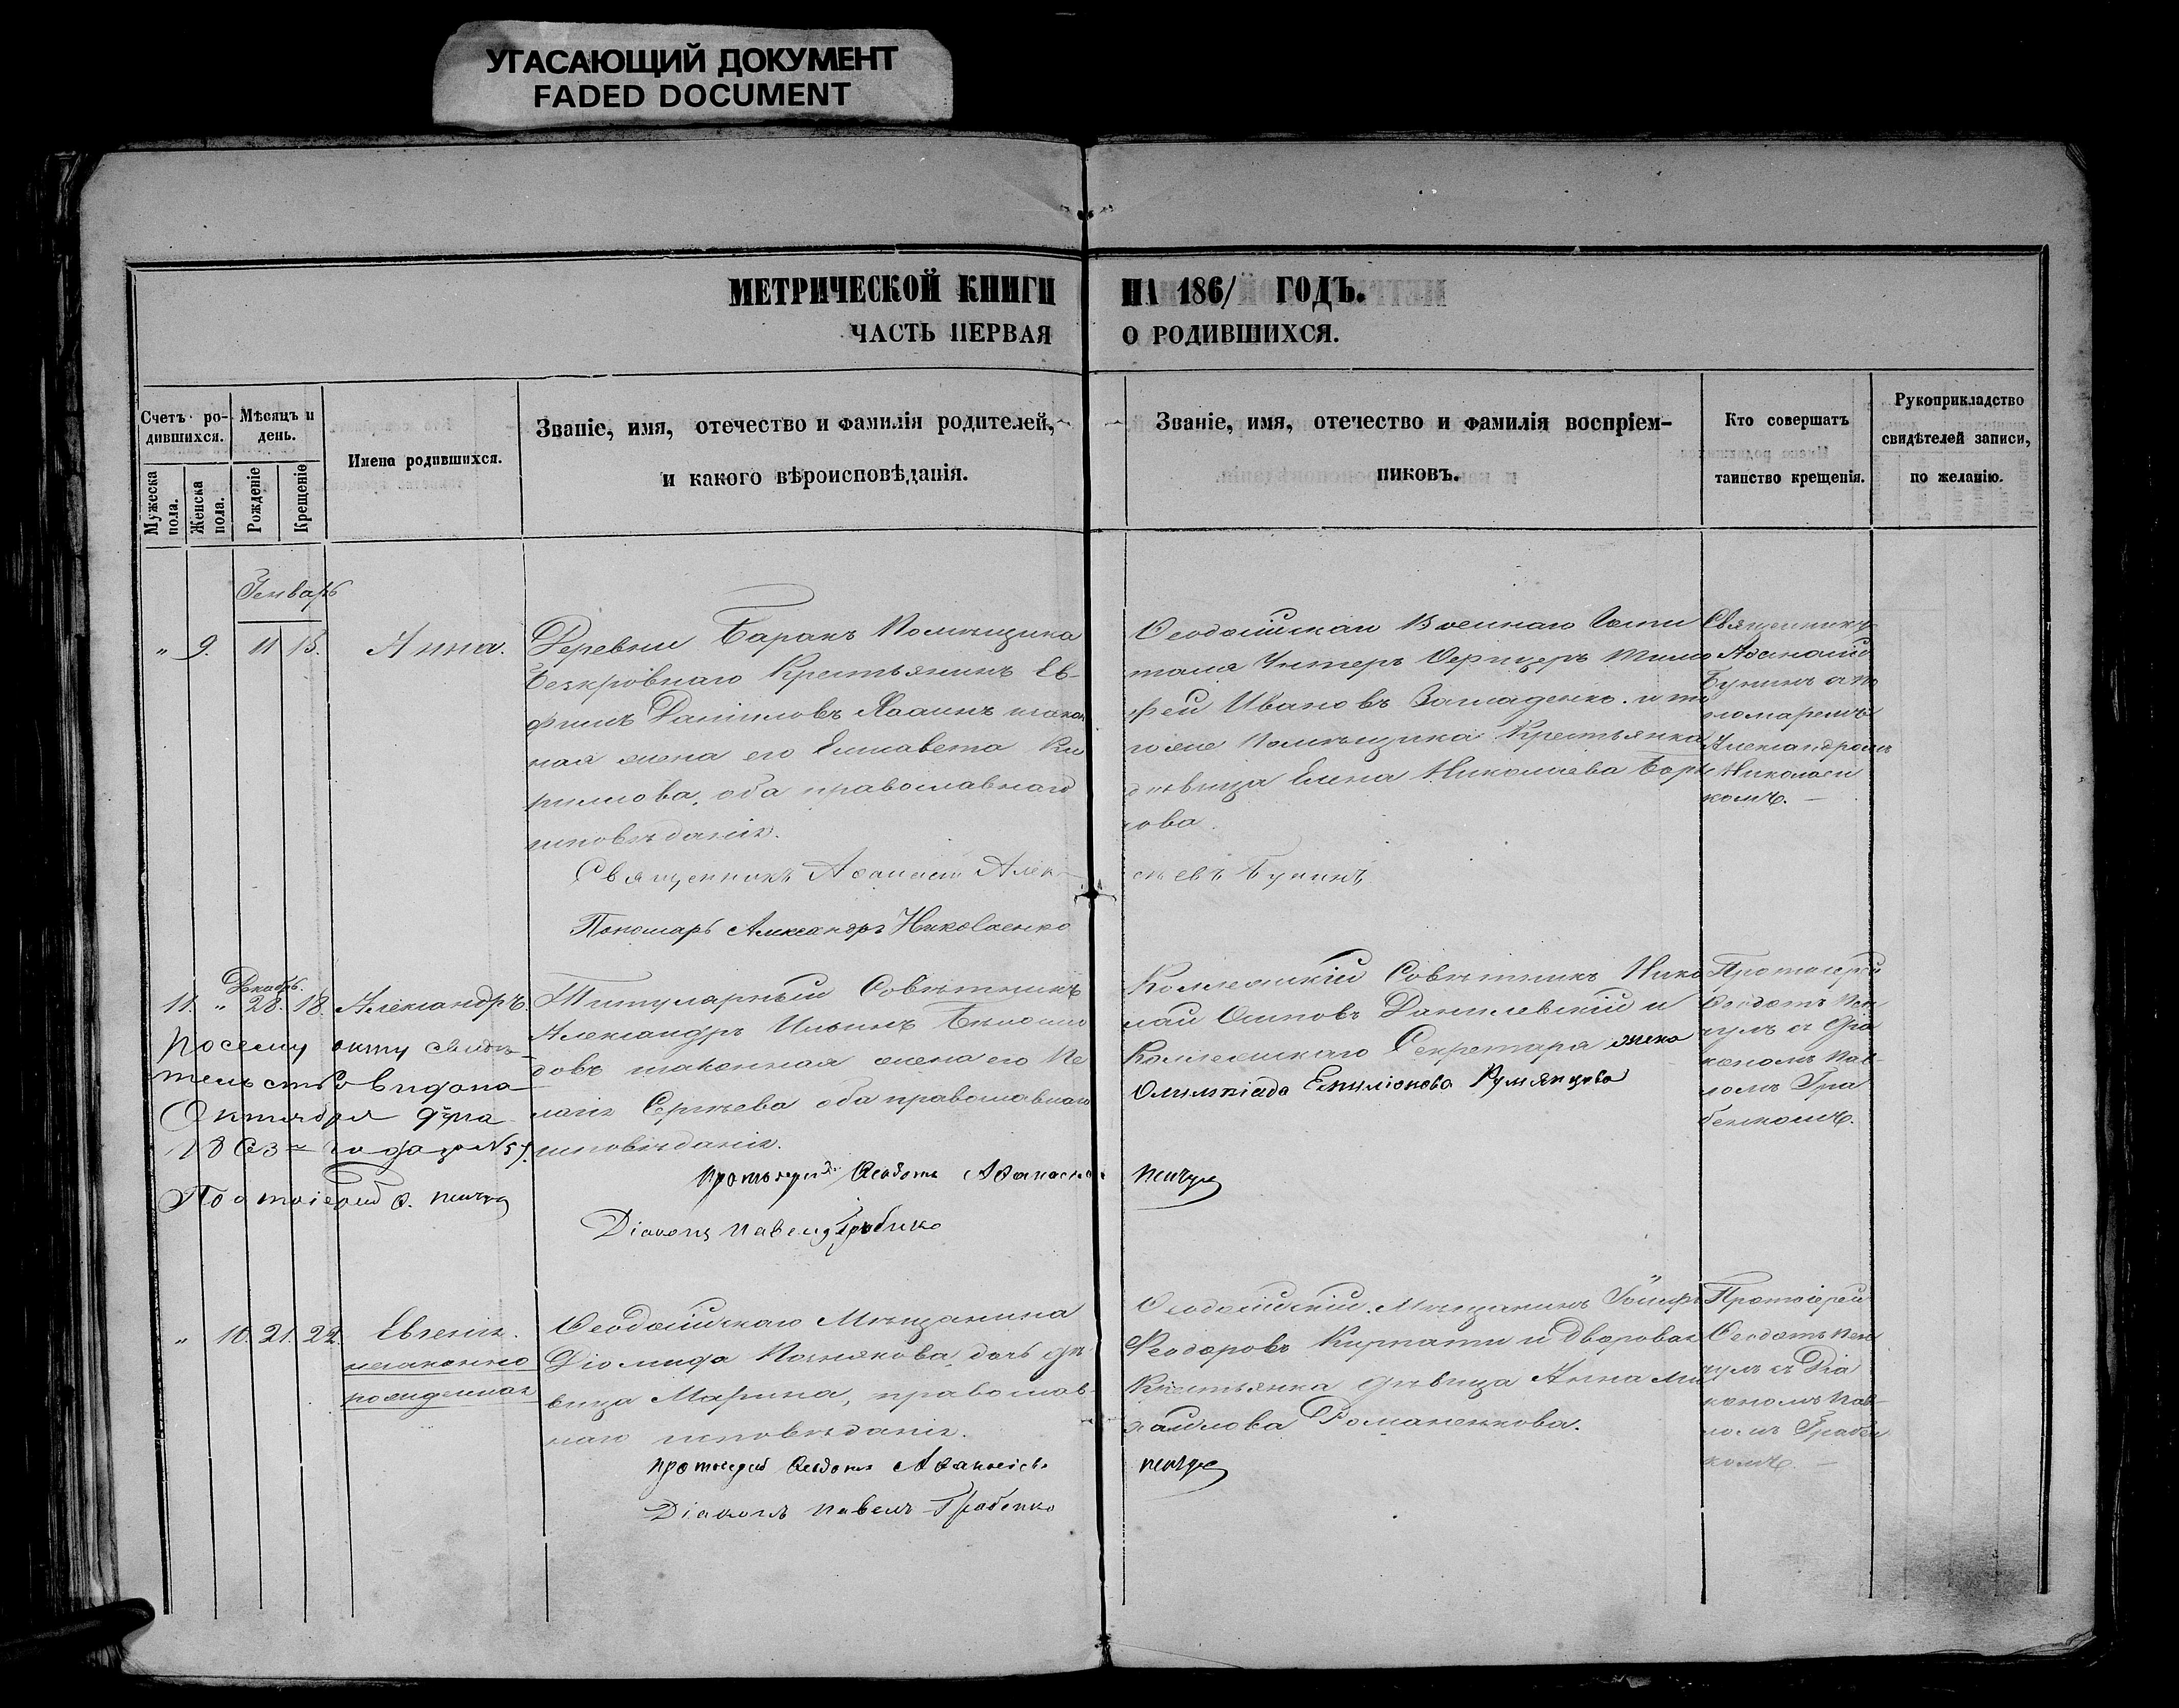 УГАСАЮЩИЙ ДОКУМЕНТ
FADED DOCUMENT
МЕТРИЧЕСКОЙ КНИГИ НА 1861 ГОДЪ.
ЧАСТЬ ПЕРВАЯ О РОДИВШИХСЯ.
Счетъ родившихся.
Мужеска пола.
Женска пола.
Мѣсяцъ и день.
Рожденіе
Крещеніе
Имена родившихся.
Званіе, имя, отечество и фамилія родителей,
и какого вѣроисповѣданія.
Званіе, имя, отечество и фамилія воспріем-
никовъ.
Кто совершатъ
таинство крещенія.
Рукоприкладство
свидѣтелей записи,
по желанію.
Генварь
" 9. 11 15. Анна.
Деревни Баракъ Помѣщика
Безкровнаго Крестьянинъ Ев-
фимъ Даниловъ
ная жена его Елисавета Ки
рилова, оба православнаго
исповѣданія.
Священникъ Аѳанасій Алек-
сѣевъ Бунинъ
Пономарь Александръ Николаенко
Ѳеодосійскаго Военнаго Госпи
таля Унтеръ Офицеръ Тимо
фей Ивановъ и то
гоже Помѣщика Крестьянка
дѣвица Елена Николаева
Священникъ
Аѳанасій
Бунинъ съ По
номаремъ
Александромъ
Николаен
комъ. —
Декабрь.
11. " 28. 18. Александръ.
Посему акту свидѣ-
тельство выдано
Октября 9 дня
1863 года за № 57.
Протоіерей Ѳ. Пенчул
Титулярный Совѣтникъ
Александръ Ильинъ
довъ законная жена его Пе
лагія Сергѣева оба православнаго
исповѣданія.
Протоіерей Ѳеодотъ Аѳанасьевъ Пенчул
Діаконъ Павелъ Грабенко
Коллежскій Совѣтникъ Нико
лай Осиповъ Данилевскій и
Коллежскаго Секретаря жена
Олимпіада Емиліонова Румянцова
Протоіерей
Ѳеодотъ Пен
чулъ съ Діа
кономъ Пав-
ломъ Гра
бенкомъ.
" 10. 21. 22. Евгенія.
незаконно
рожденная
Ѳеодосійскаго Мѣщанина
Діомида Познякова дочь дѣ
вица Марина, православ-
наго исповѣданія.
Протоіерей Ѳеодотъ Аѳанасьевъ Пенчул
Діаконъ Павелъ Грабенко
Ѳеодосійскій Мѣщанинъ
Ѳеодоровъ и дворовая
Крестьянка дѣвица Анна Ми
хайлова Романенкова.
Протоіерей
Ѳеодотъ Пен
чулъ съ Діа
кономъ Пав-
ломъ Грабен
комъ. —